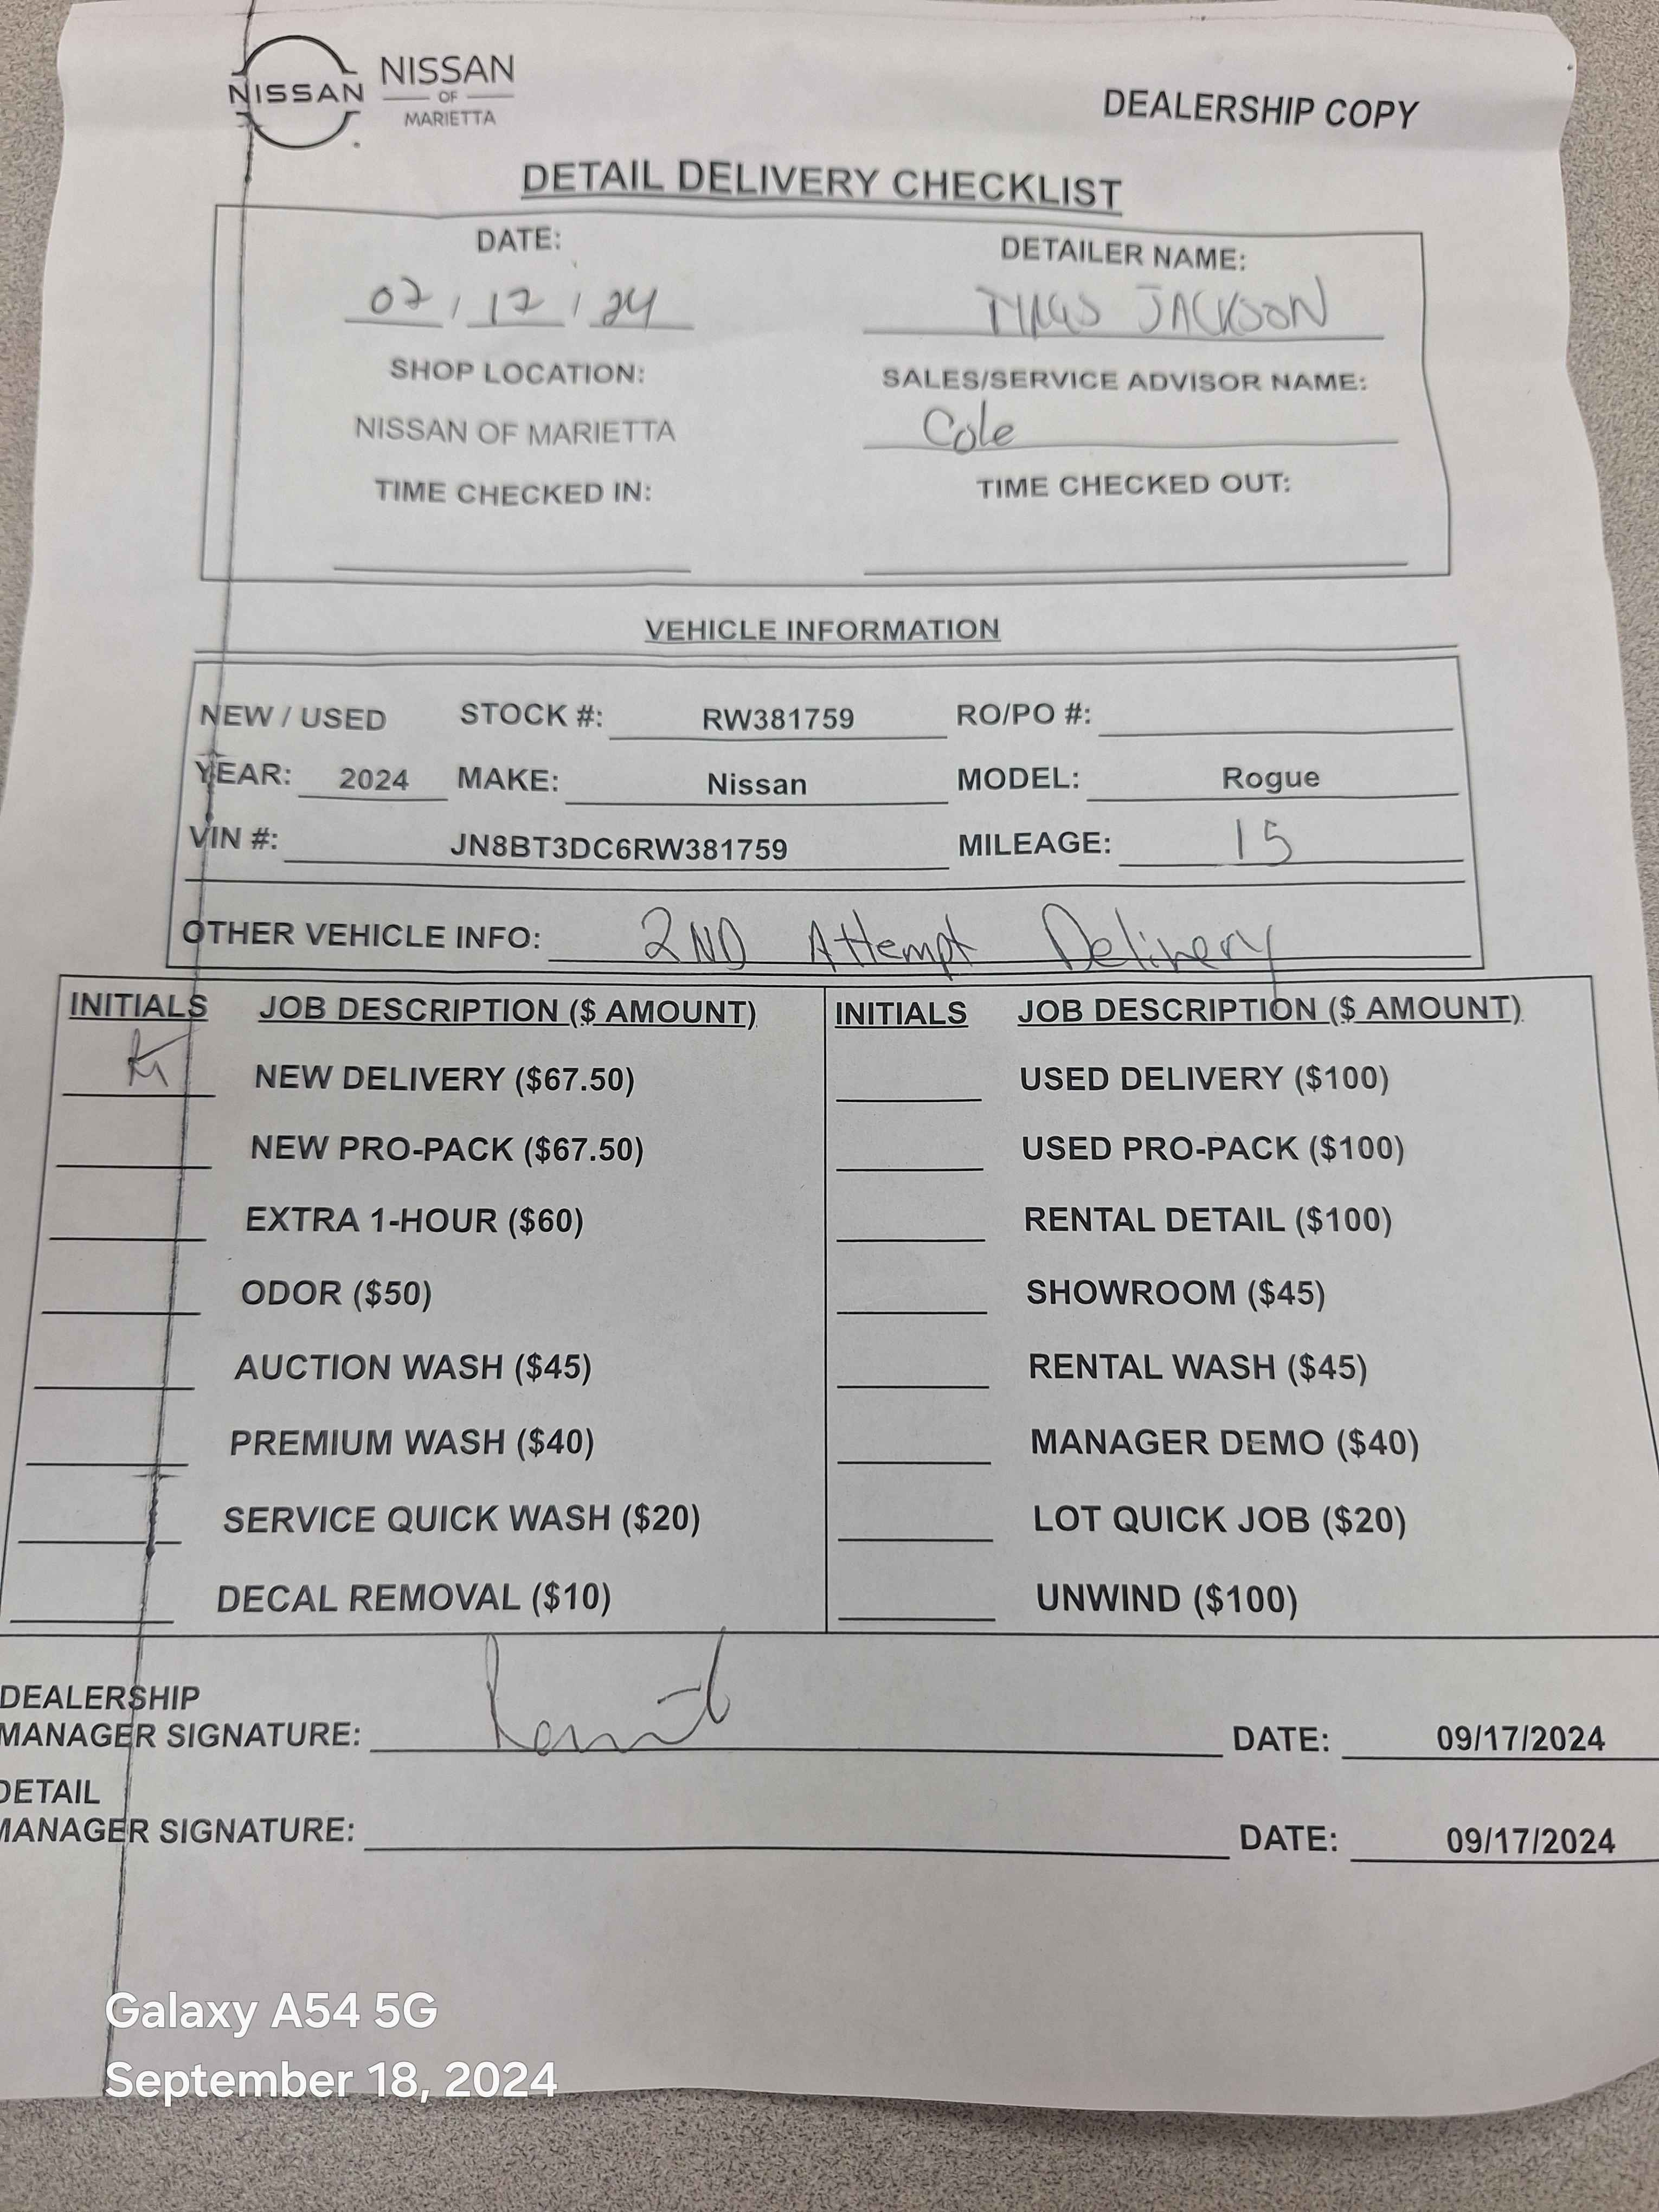 NISSAN NISSAN
OF
MARIETTA
DEALERSHIP COPY
DETAIL DELIVERY CHECKLIST
DATE: DETAILER NAME:
07 / 17 / 24 JACKSON
SHOP LOCATION: SALES/SERVICE ADVISOR NAME:
NISSAN OF MARIETTA Cole
TIME CHECKED IN: TIME CHECKED OUT:
VEHICLE INFORMATION
NEW / USED STOCK #: RW381759 RO/PO #:
YEAR: 2024 MAKE: Nissan MODEL: Rogue
VIN #: JN8BT3DC6RW381759 MILEAGE: 15
OTHER VEHICLE INFO: 2ND Attempt Delivery
INITIALS JOB DESCRIPTION ($ AMOUNT) INITIALS JOB DESCRIPTION ($ AMOUNT)
NEW DELIVERY ($67.50) USED DELIVERY ($100)
NEW PRO-PACK ($67.50) USED PRO-PACK ($100)
EXTRA 1-HOUR ($60) RENTAL DETAIL ($100)
ODOR ($50) SHOWROOM ($45)
AUCTION WASH ($45) RENTAL WASH ($45)
PREMIUM WASH ($40) MANAGER DEMO ($40)
SERVICE QUICK WASH ($20) LOT QUICK JOB ($20)
DECAL REMOVAL ($10) UNWIND ($100)
DEALERSHIP
MANAGER SIGNATURE: DATE: 09/17/2024
DETAIL
MANAGER SIGNATURE: DATE: 09/17/2024
Galaxy A54 5G
September 18, 2024